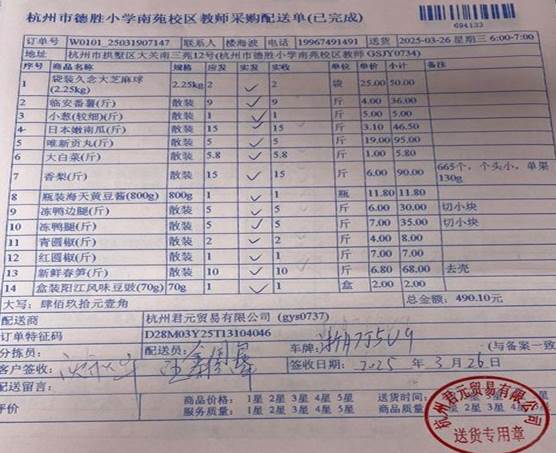 杭州市德胜小学南苑校区教师采购配送单(已完成)
694133
订单号 W0101_25031907147 联系人 楼海波 电话 19967491491 送货 2025-03-26 星期三 6:00-7:00
地址 杭州市拱墅区大关南三苑12号(杭州市德胜小学南苑校区教师 GSJY0734)
序号 商品名 规格 应发 实发 实收 单位 单价 小计 备注
1 袋装久念大芝麻球(2.25kg) 2.25kg 2 2 袋 25.00 50.00
2 临安番薯(斤) 散装 9 9 斤 4.00 36.00
3 小葱(较细)(斤) 散装 1 1 斤 5.00 5.00
4 日本嫩南瓜(斤) 散装 15 15 斤 3.10 46.50
5 唯新贡丸(斤) 散装 5 5 斤 19.00 95.00
6 大白菜(斤) 散装 5.8 5.8 斤 1.00 5.80
7 香梨(斤) 散装 15 15 斤 6.00 90.00 665个，个头小，单果130g
8 瓶装海天黄豆酱(800g) 800g 1 1 瓶 11.80 11.80
9 冻鸭边腿(斤) 散装 5 5 斤 6.00 30.00 切小块
10 冻鸭腿(斤) 散装 5 5 斤 7.00 35.00 切小块
11 青圆椒(斤) 散装 2 2 斤 4.00 8.00
12 红圆椒(斤) 散装 1 1 斤 7.00 7.00
13 新鲜春笋(斤) 散装 10 10 斤 6.80 68.00 去壳
14 盒装阳江风味豆豉(70g) 70g 1 1 盒 2.00 2.00
大写：肆佰玖拾元壹角 总金额：490.10元
配送商 杭州君元贸易有限公司 (gys0737)
订单特征码 D28M03Y25T13104046
分拣员： 配送员： 车牌： (与备案一致
客户签收： 签收日期：2025 年 3 月 26 日
配送留言：
评价 商品价格：1星 2星 3星 4星 5星 送货时间：
服务质量：1星 2星 3星 4星 5星 商品质量：
杭州君元贸易有限公司
送货专用章